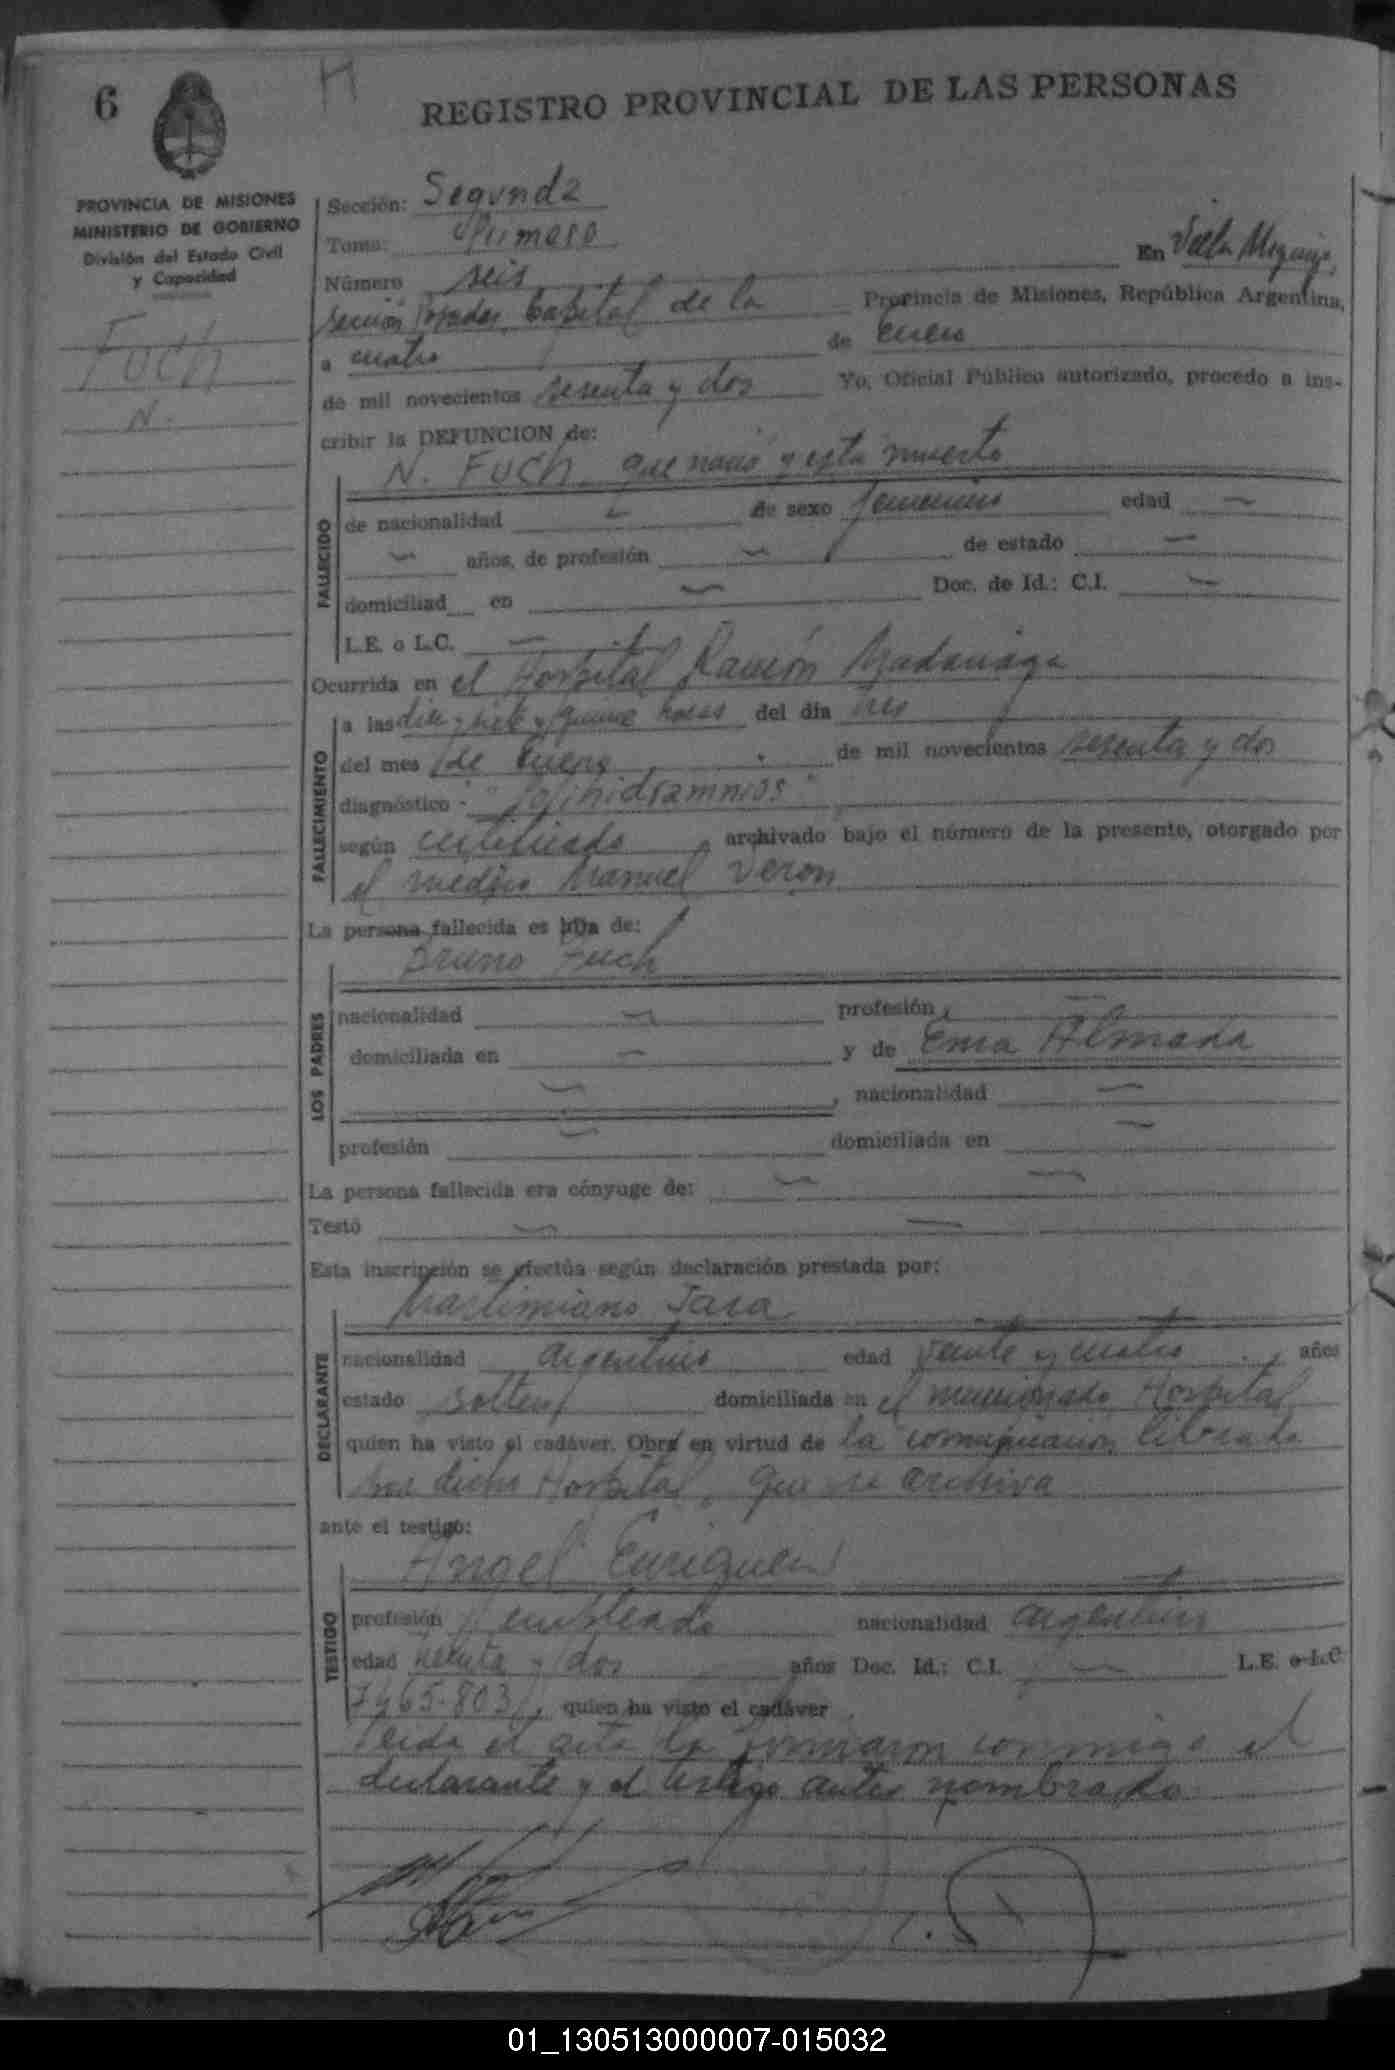 6
H
REGISTRO PROVINCIAL DE LAS PERSONAS
PROVINCIA DE MISIONES
MINISTERIO DE GOBIERNO
División del Estado Civil
y Capacidad
F
Fuch
N.
Sección: Segunda
Tomo: Primero
Número seis En Villa
sección Posadas Capital de la Provincia de Misiones, República Argentina,
a cuatro de Enero
de mil novecientos sesenta y dos Yo, Oficial Público autorizado, procedo a ins-
cribir la DEFUNCION de:
N. Fuch que nació y esta muerto
FALLECIDO
de nacionalidad — de sexo femenino edad —
— años, de profesión — de estado —
domiciliad en — Doc. de Id.: C.I. —
L.E. o L.C. —
Ocurrida en el Hospital Ramón Madariaga
FALLECIMIENTO
a las diez y siete y quince horas del día tres
del mes de Enero de mil novecientos sesenta y dos
diagnóstico "
según certificado archivado bajo el número de la presente, otorgado por
el medico Manuel Veron
La persona fallecida es hija de:
Bruno Fuch
LOS PADRES
nacionalidad — profesión —
domiciliada en — y de Ema Almada
— , nacionalidad —
profesión — domiciliada en —
La persona fallecida era cónyuge de: — —
Testó — —
Esta inscripción se efectúa según declaración prestada por:
Jara
DECLARANTE
nacionalidad argentino edad veinte y cuatro años
estado soltero domiciliada en el mencionado Hospital
quien ha visto el cadáver. Obra en virtud de la comunicación librada
por dicho Hospital, que se archiva
ante el testigo:
Angel
TESTIGO
profesión empleado nacionalidad argentino
edad treinta y dos años Doc. Id.: C.I. — L.E. o L.C.
7465.803, quien ha visto el cadáver
Leida el acta la firmaron conmigo el
declarante y el testigo antes nombrado
01_130513000007-015032